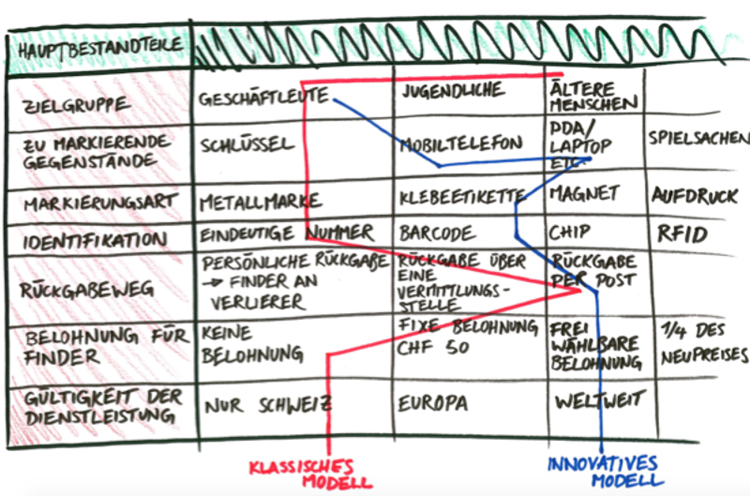 HAUPTBESTANDTEILE
ZIELGRUPPE
GESCHÄFTLEUTE
JUGENDLICHE
ÄLTERE
MENSCHEN
ZU MARKIERENDE
GEGENSTÄNDE
SCHLÜSSEL
MOBILTELEFON
PDA/
LAPTOP
ETC.
SPIELSACHEN
MARKIERUNGSART
METALLMARKE
KLEBEETIKETTE
MAGNET
AUFDRUCK
IDENTIFIKATION
EINDEUTIGE NUMMER
BARCODE
CHIP
RFID
RÜCKGABEWEG
PERSÖNLICHE RÜCKGABE
→ FINDER AN
VERLIERER
RÜCKGABE ÜBER
EINE
VERMITTLUNGS-
STELLE
RÜCKGABE
PER POST
BELOHNUNG FÜR
FINDER
KEINE
BELOHNUNG
FIXE BELOHNUNG
CHF 50
FREI
WÄHLBARE
BELOHNUNG
1/4 DES
NEUPREISES
GÜLTIGKEIT DER
DIENSTLEISTUNG
NUR SCHWEIZ
EUROPA
WELTWEIT
KLASSISCHES
MODELL
INNOVATIVES
MODELL